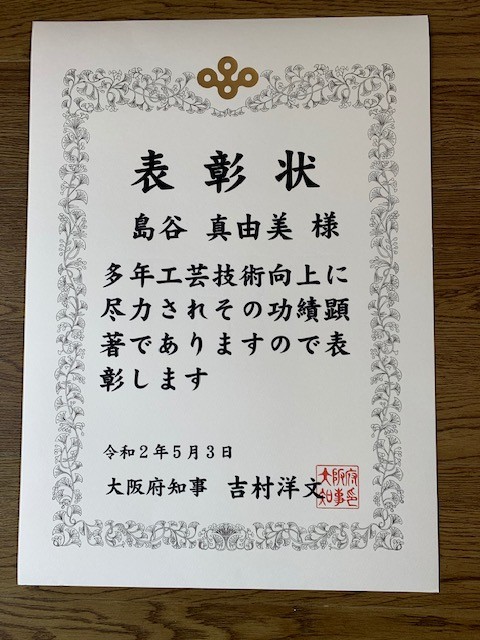 表彰状
島谷 真由美 様
多年工芸技術向上に
尽力されその功績顕
著でありますので表
彰します
令和2年5月3日
大阪府知事 吉村洋文
大阪府
知事印